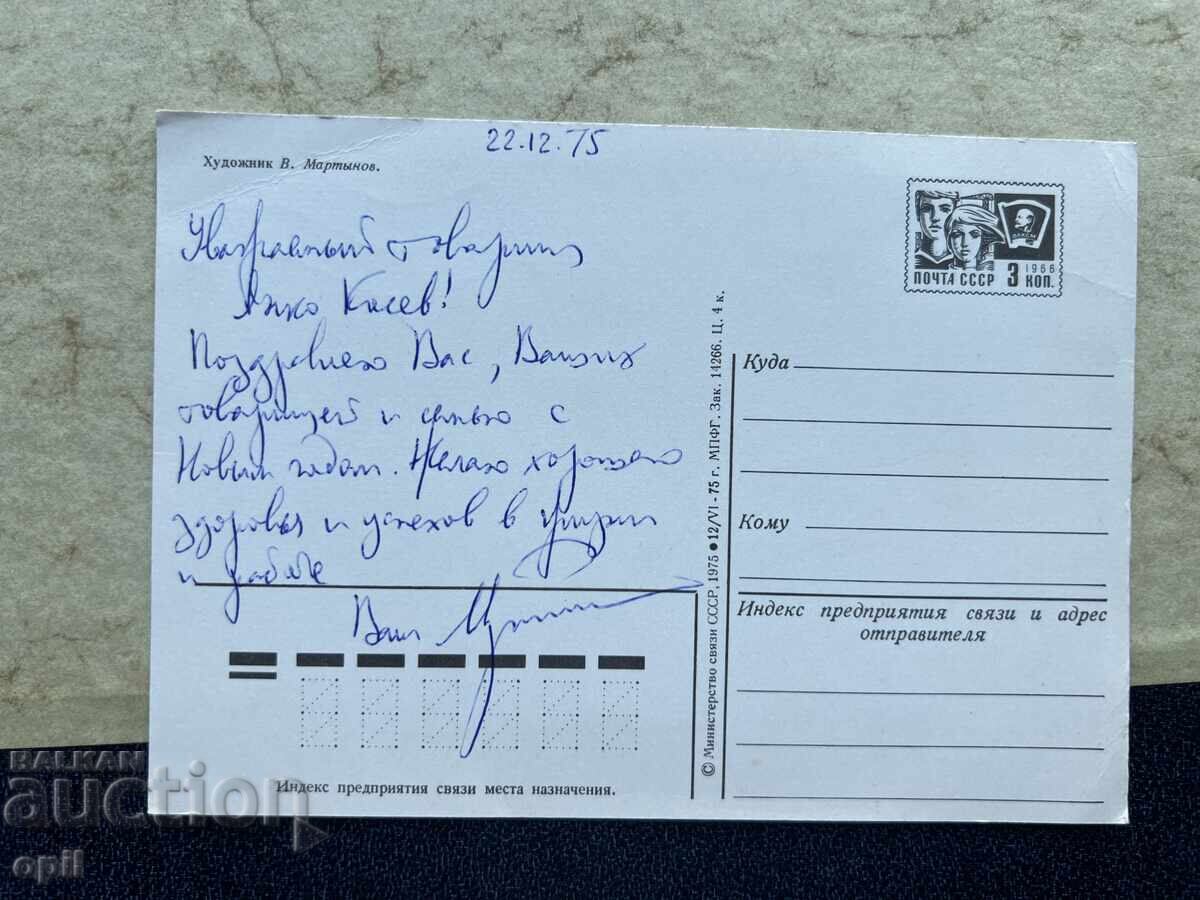 22.12.75
Художник В. Мартынов.
Уважаемый товарищ
Янко Кисев!
Поздравляю Вас, Ваших
товарищей и семью с
Новым годом. Желаю хорошего
здоровья и успехов в
и работе
Ваш
ВЛКСМ
1966
ПОЧТА СССР 3 КОП.
Куда
Кому
Индекс предприятия связи и адрес
отправителя
© Министерство связи СССР, 1975 ● 12/VI-75 г. МПФГ. Зак. 14266. Ц. 4 к.
Индекс предприятия связи места назначения.
BALKAN
auction
opil